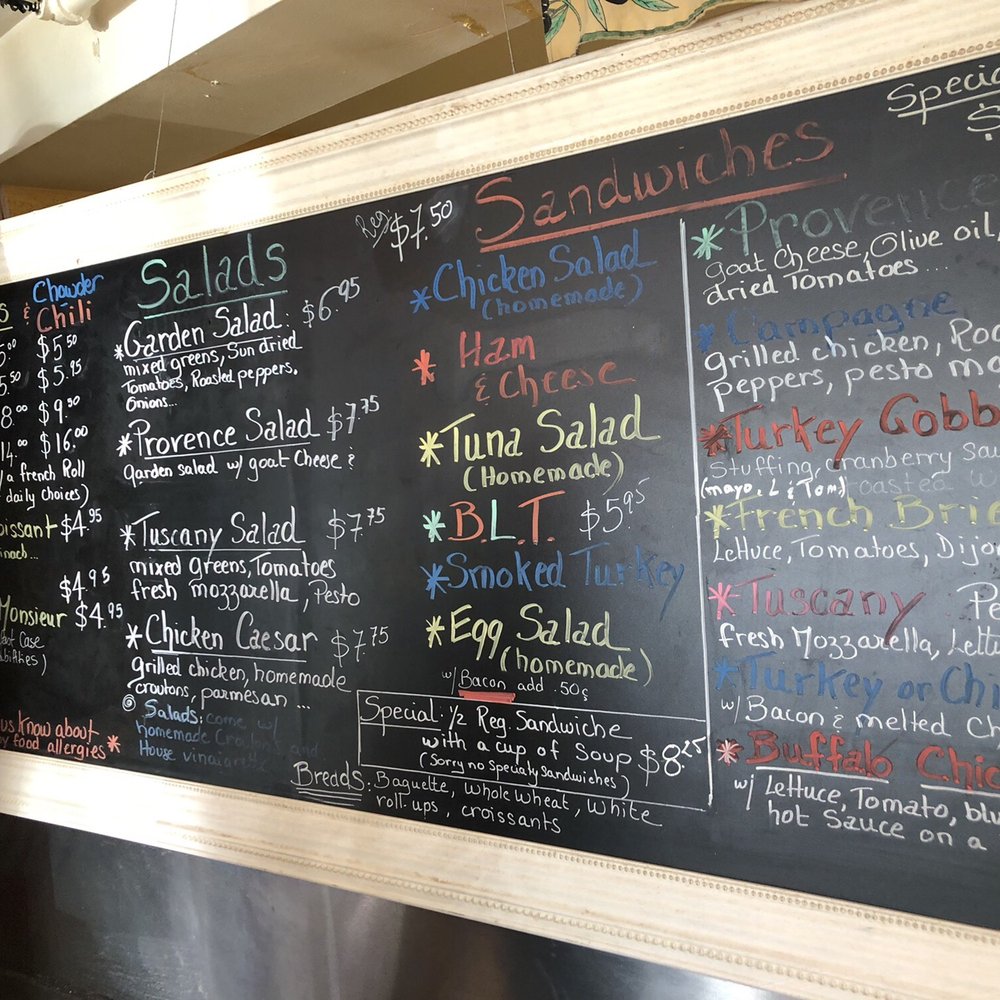 Chowder
& Chili
5.00 $5.50
5.50 $5.95
8.00 $9.50
14.00 $16.00
/a french Roll
daily choices)
$4.95
$4.95
Monsieur $4.95
us know about
food allergies*
Salads
*Garden Salad: $6.95
mixed greens, Sun dried
Tomatoes, Roasted peppers.
Onions...
*Provence Salad $7.75
Garden salad w/ goat Cheese &
*Tuscany Salad $7.75
mixed greens, Tomatoes
fresh mozzarella, Pesto
*Chicken Caesar $7.75
grilled chicken, homemade
croutons, parmesan ...
Salads: come w/
homemade Croutons and
House vinaigrette
Reg. $7.50
Sandwiches
*Chicken Salad
(homemade)
*Ham
& Cheese
*Tuna Salad
(Homemade)
*B.L.T. $5.95
*Smoked Turkey
*Egg Salad
(homemade)
w/ Bacon add .50¢
Special: 1/2 Reg. Sandwiche
with a cup of Soup $8.25
(Sorry no specialty sandwiches)
Breads: Baguette, whole wheat, White
roll-ups, croissants
$
*Provence
goat Cheese, Olive oil,
dried Tomatoes....
*Campagne
grilled chicken,
peppers, pesto
*Turkey
Stuffing, cranberry
(mayo, L & Tom) roasted
*French Brie
Lettuce, Tomatoes,
*Tuscany
fresh Mozzarella,
*Turkey or
w/ Bacon & melted
*Buffalo
w/ Lettuce, Tomato,
hot Sauce on a